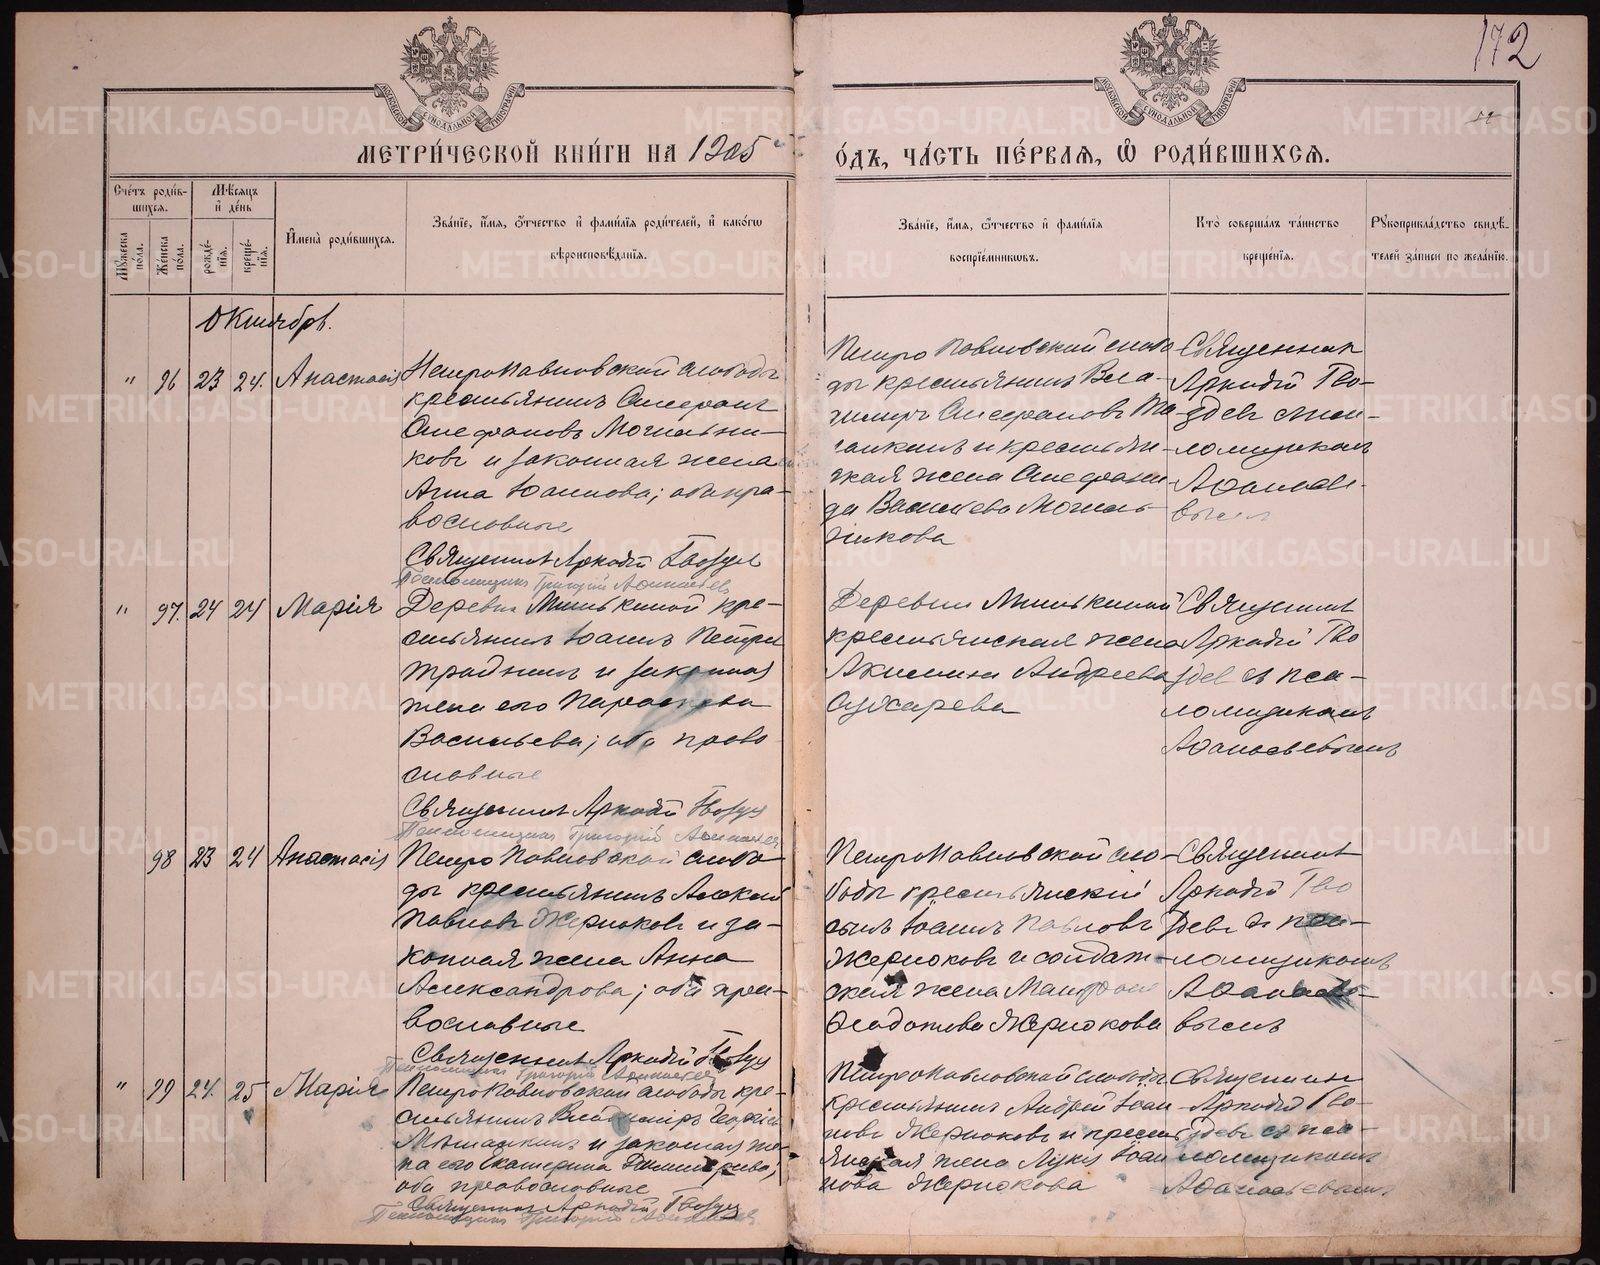 172
МЕТРИ́ЧЕСКОЙ КНИ́ГИ НА 1905
О́ДЪ, ЧА́СТЬ ПЕ́РВАЯ, Ѡ҆ РОДИ́ВШИХСЯ.
Сче́тъ роди́вшихся.
Мꙋ́жеска по́ла.
Же́нска по́ла.
Мѣ́сяцъ и҆ де́нь
рожде́нїя.
креще́нїя.
И҆мена̀ роди́вшихся.
Зва́нїе, и҆́мя, ѻ҆́тчество и҆ фами́лїя роди́телей, и҆ како́гѡ
вѣроисповѣ́данїя.
Зва́нїе, и҆́мя, ѻ҆́тчество и҆ фами́лїя
воспрїе́мникѡвъ.
Кто̀ соверша́лъ та́инство
креще́нїя.
Рꙋкоприкла́дство свидѣ́-
телей за́писи по жела́нїю.
Октябрь.
" 96 23 24. Анастасія
Петропавловской слободы
крестьянинъ Стефанъ
Стефановъ Могильни-
ковъ и законная жена
Анна Іоаннова; оба пра-
вославные
Священникъ Аркадій Гвоздев
Псаломщикъ Григорій Афанасьев
Петропавловской слобо
ды крестьянинъ Вла-
димиръ Стефановъ
и крестьян-
ская жена Стефани-
да Васильева Могиль-
никова
Священник
Аркадій Гво-
здевъ с псал-
ломщикомъ
Афанасье-
вымъ
" 97. 24 24 Марія
Деревни Минькиной кре-
стьянинъ Іоаннъ Петров
и законная
жена его Параскева
Васильева; оба право
славные
Священникъ Аркадій Гвоздев
Псаломщикъ Григорій Афанасьев
Деревни Минькиной
крестьянская жена
Акилина Андреева
Сухарева
Священникъ
Аркадій Гво
здев съ пса-
ломщикомъ
Афанасьевымъ
98 23 24 Анастасія
Петропавловской слобо
ды крестьянинъ Алексий
Павловъ Жернаковъ и за-
конная жена Анна
Александрова; оба пра-
вославные
Священник Аркадій Гвоздев
Псаломщикъ Григорій Афанасьев
Петропавловской сло-
боды крестьянскій
сынъ Іоаннъ Павловъ
Жернаковъ и солдат-
ская жена
Жернакова
Священникъ
Аркадій Гво
здевъ съ пса-
ломщикомъ
Афанасье-
вымъ
" 99 24. 25 Марія
Петропавловской слободы кре-
стьянинъ Владимиръ Георгіев
и законная же-
на его Екатерина Димитріева;
оба православные
Священник Аркадій Гвоздев
Псаломщикъ Григорій Афанасьев
Петропавловской слободы
крестьянинъ Андрей Іоан-
новъ Жернаковъ и кресть
янская жена Лукія Іоан
нова Жернакова
Священникъ
Аркадій Гво-
здевъ съ пса-
ломщикомъ
Афанасьевымъ
METRIKI.GASO-URAL.RU